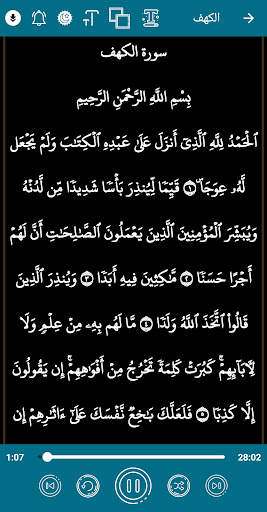 الكهف
سورة الكهف
بِسْمِ اللَّهِ الرَّحْمَٰنِ الرَّحِيمِ
الْحَمْدُ لِلَّهِ الَّذِىٓ أَنزَلَ عَلَىٰ عَبْدِهِ الْكِتَابَ وَلَمْ يَجْعَل
لَّهُۥ عِوَجَاۜ ١ قَيِّمًا لِّيُنذِرَ بَأْسًا شَدِيدًا مِّن لَّدُنْهُ
وَيُبَشِّرَ الْمُؤْمِنِينَ الَّذِينَ يَعْمَلُونَ الصَّالِحَاتِ أَنَّ لَهُمْ
أَجْرًا حَسَنًا ٢ مَّاكِثِينَ فِيهِ أَبَدًا ٣ وَيُنذِرَ الَّذِينَ
قَالُوا۟ اتَّخَذَ اللَّهُ وَلَدًا ٤ مَّا لَهُم بِهِۦ مِنْ عِلْمٍ وَلَا
لِآبَآئِهِمْ ۚ كَبُرَتْ كَلِمَةً تَخْرُجُ مِنْ أَفْوَاهِهِمْ ۚ إِن يَقُولُونَ
إِلَّا كَذِبًا ٥ فَلَعَلَّكَ بَاخِعٌ نَّفْسَكَ عَلَىٰٓ ءَاثَارِهِمْ إِن
1:07 28:02